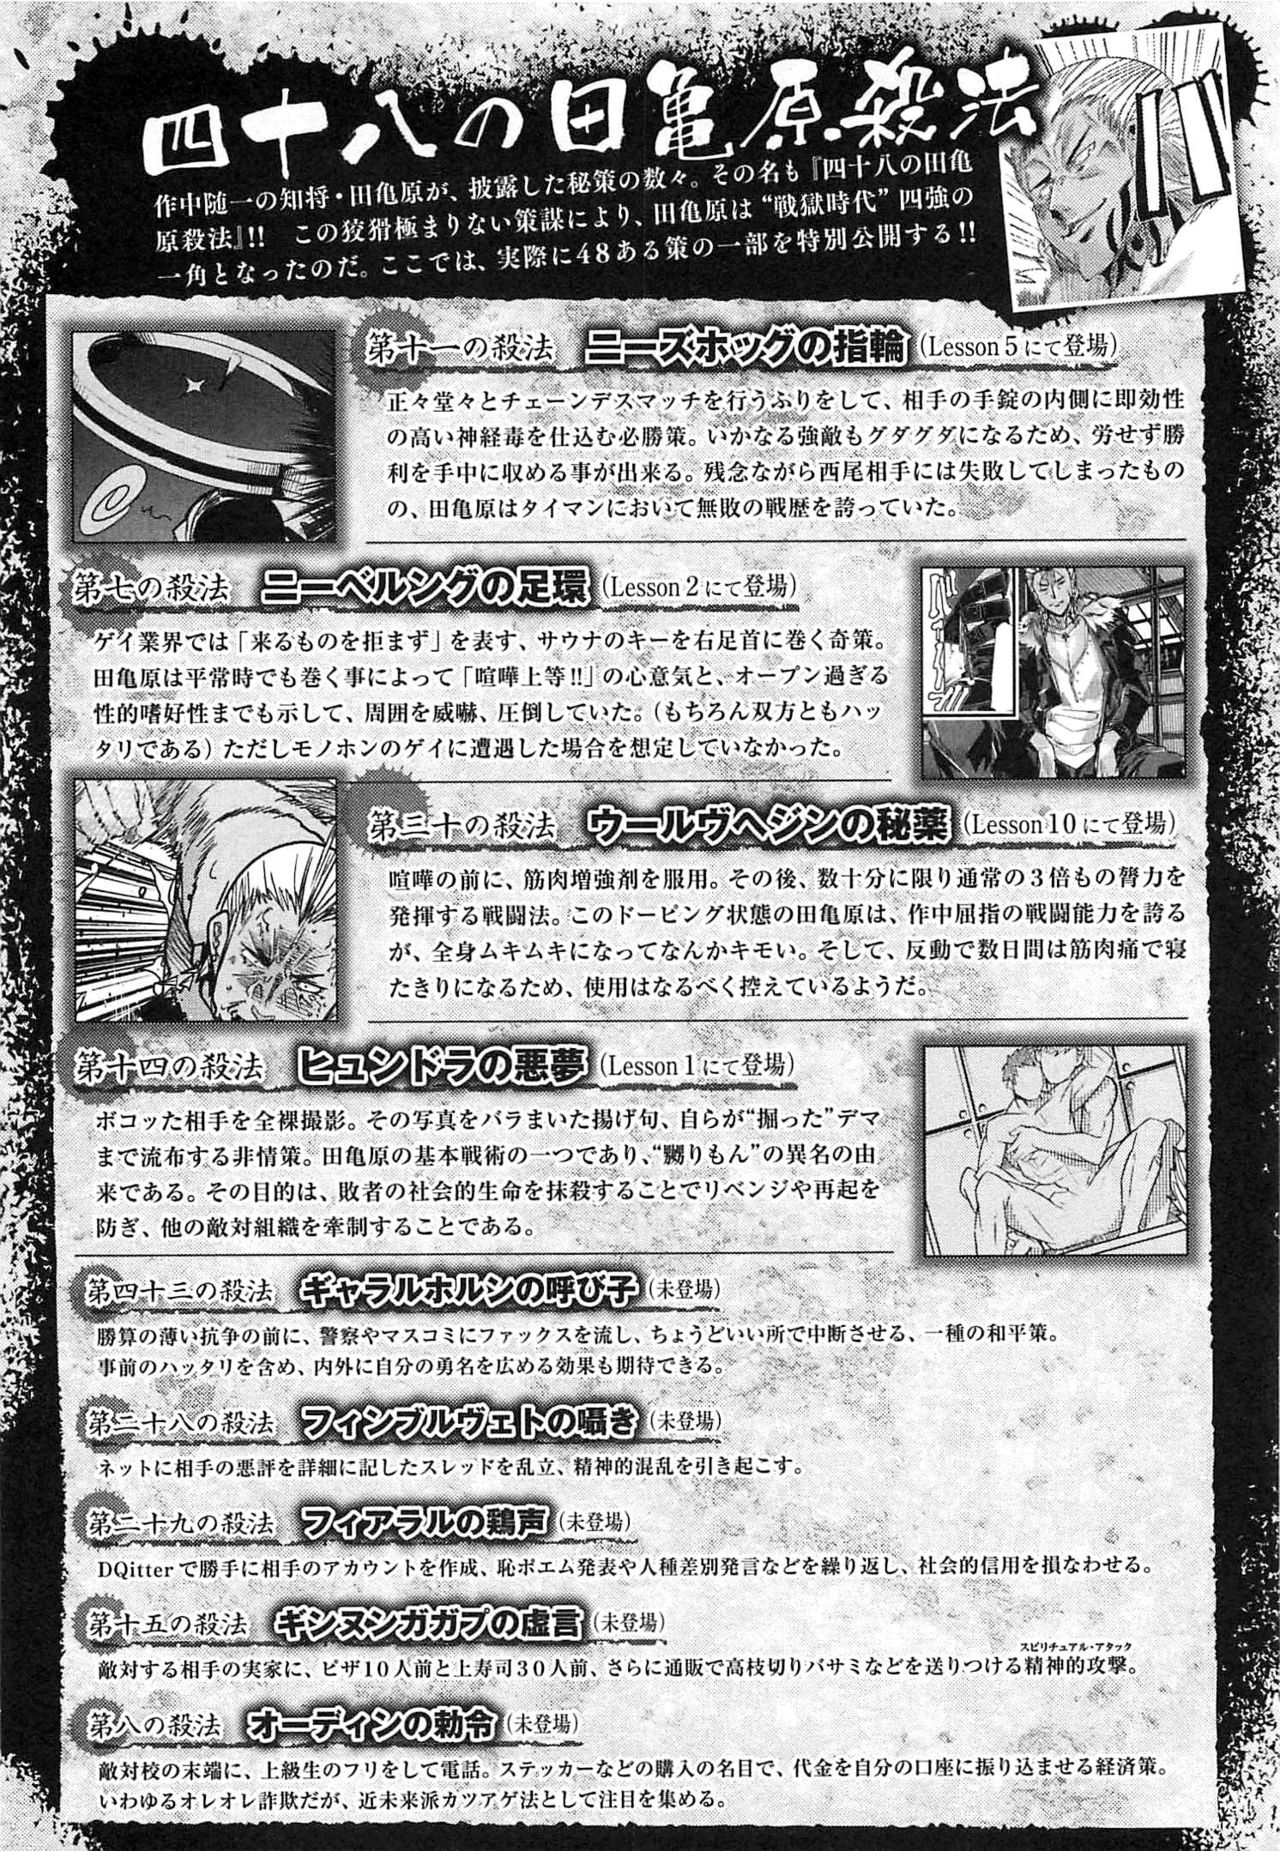 四十八の田亀原殺法
作中随一の知将・田亀原が、披露した秘策の数々。その名も『四十八の田亀
原殺法』!! この狡猾極まりない策謀により、田亀原は“戦獄時代”四強の
一角となったのだ。ここでは、実際に48ある策の一部を特別公開する!!
第十一の殺法 ニーズホッグの指輪 (Lesson 5にて登場)
正々堂々とチェーンデスマッチを行うふりをして、相手の手錠の内側に即効性
の高い神経毒を仕込む必勝策。いかなる強敵もグダグダになるため、労せず勝
利を手中に収める事が出来る。残念ながら西尾相手には失敗してしまったもの
の、田亀原はタイマンにおいて無敗の戦歴を誇っていた。
第七の殺法 ニーベルングの足環 (Lesson 2にて登場)
ゲイ業界では「来るものを拒まず」を表す、サウナのキーを右足首に巻く奇策。
田亀原は平常時でも巻く事によって「喧嘩上等!!」の心意気と、オープン過ぎる
性的嗜好性までも示して、周囲を威嚇、圧倒していた。(もちろん双方ともハッ
タリである) ただしモノホンのゲイに遭遇した場合を想定していなかった。
第三十の殺法 ウールヴヘジンの秘薬 (Lesson 10にて登場)
喧嘩の前に、筋肉増強剤を服用。その後、数十分に限り通常の3倍もの膂力を
発揮する戦闘法。このドーピング状態の田亀原は、作中屈指の戦闘能力を誇る
が、全身ムキムキになってなんかキモい。そして、反動で数日間は筋肉痛で寝
たきりになるため、使用はなるべく控えているようだ。
第十四の殺法 ヒュンドラの悪夢 (Lesson 1にて登場)
ボコッた相手を全裸撮影。その写真をバラまいた揚げ句、自らが“掘った”デマ
まで流布する非情策。田亀原の基本戦術の一つであり、“嬲りもん”の異名の由
来である。その目的は、敗者の社会的生命を抹殺することでリベンジや再起を
防ぎ、他の敵対組織を牽制することである。
第四十三の殺法 ギャラルホルンの呼び子 (未登場)
勝算の薄い抗争の前に、警察やマスコミにファックスを流し、ちょうどいい所で中断させる、一種の和平策。
事前のハッタリを含め、内外に自分の勇名を広める効果も期待できる。
第二十八の殺法 フィンブルヴェトの囁き (未登場)
ネットに相手の悪評を詳細に記したスレッドを乱立、精神的混乱を引き起こす。
第二十九の殺法 フィアラルの鶏声 (未登場)
DQitterで勝手に相手のアカウントを作成、恥ポエム発表や人種差別発言などを繰り返し、社会的信用を損なわせる。
第十五の殺法 ギンヌンガガプの虚言 (未登場)
スピリチュアル・アタック
敵対する相手の実家に、ピザ10人前と上寿司30人前、さらに通販で高枝切りバサミなどを送りつける精神的攻撃。
第八の殺法 オーディンの勅令 (未登場)
敵対校の末端に、上級生のフリをして電話。ステッカーなどの購入の名目で、代金を自分の口座に振り込ませる経済策。
いわゆるオレオレ詐欺だが、近未来派カツアゲ法として注目を集める。